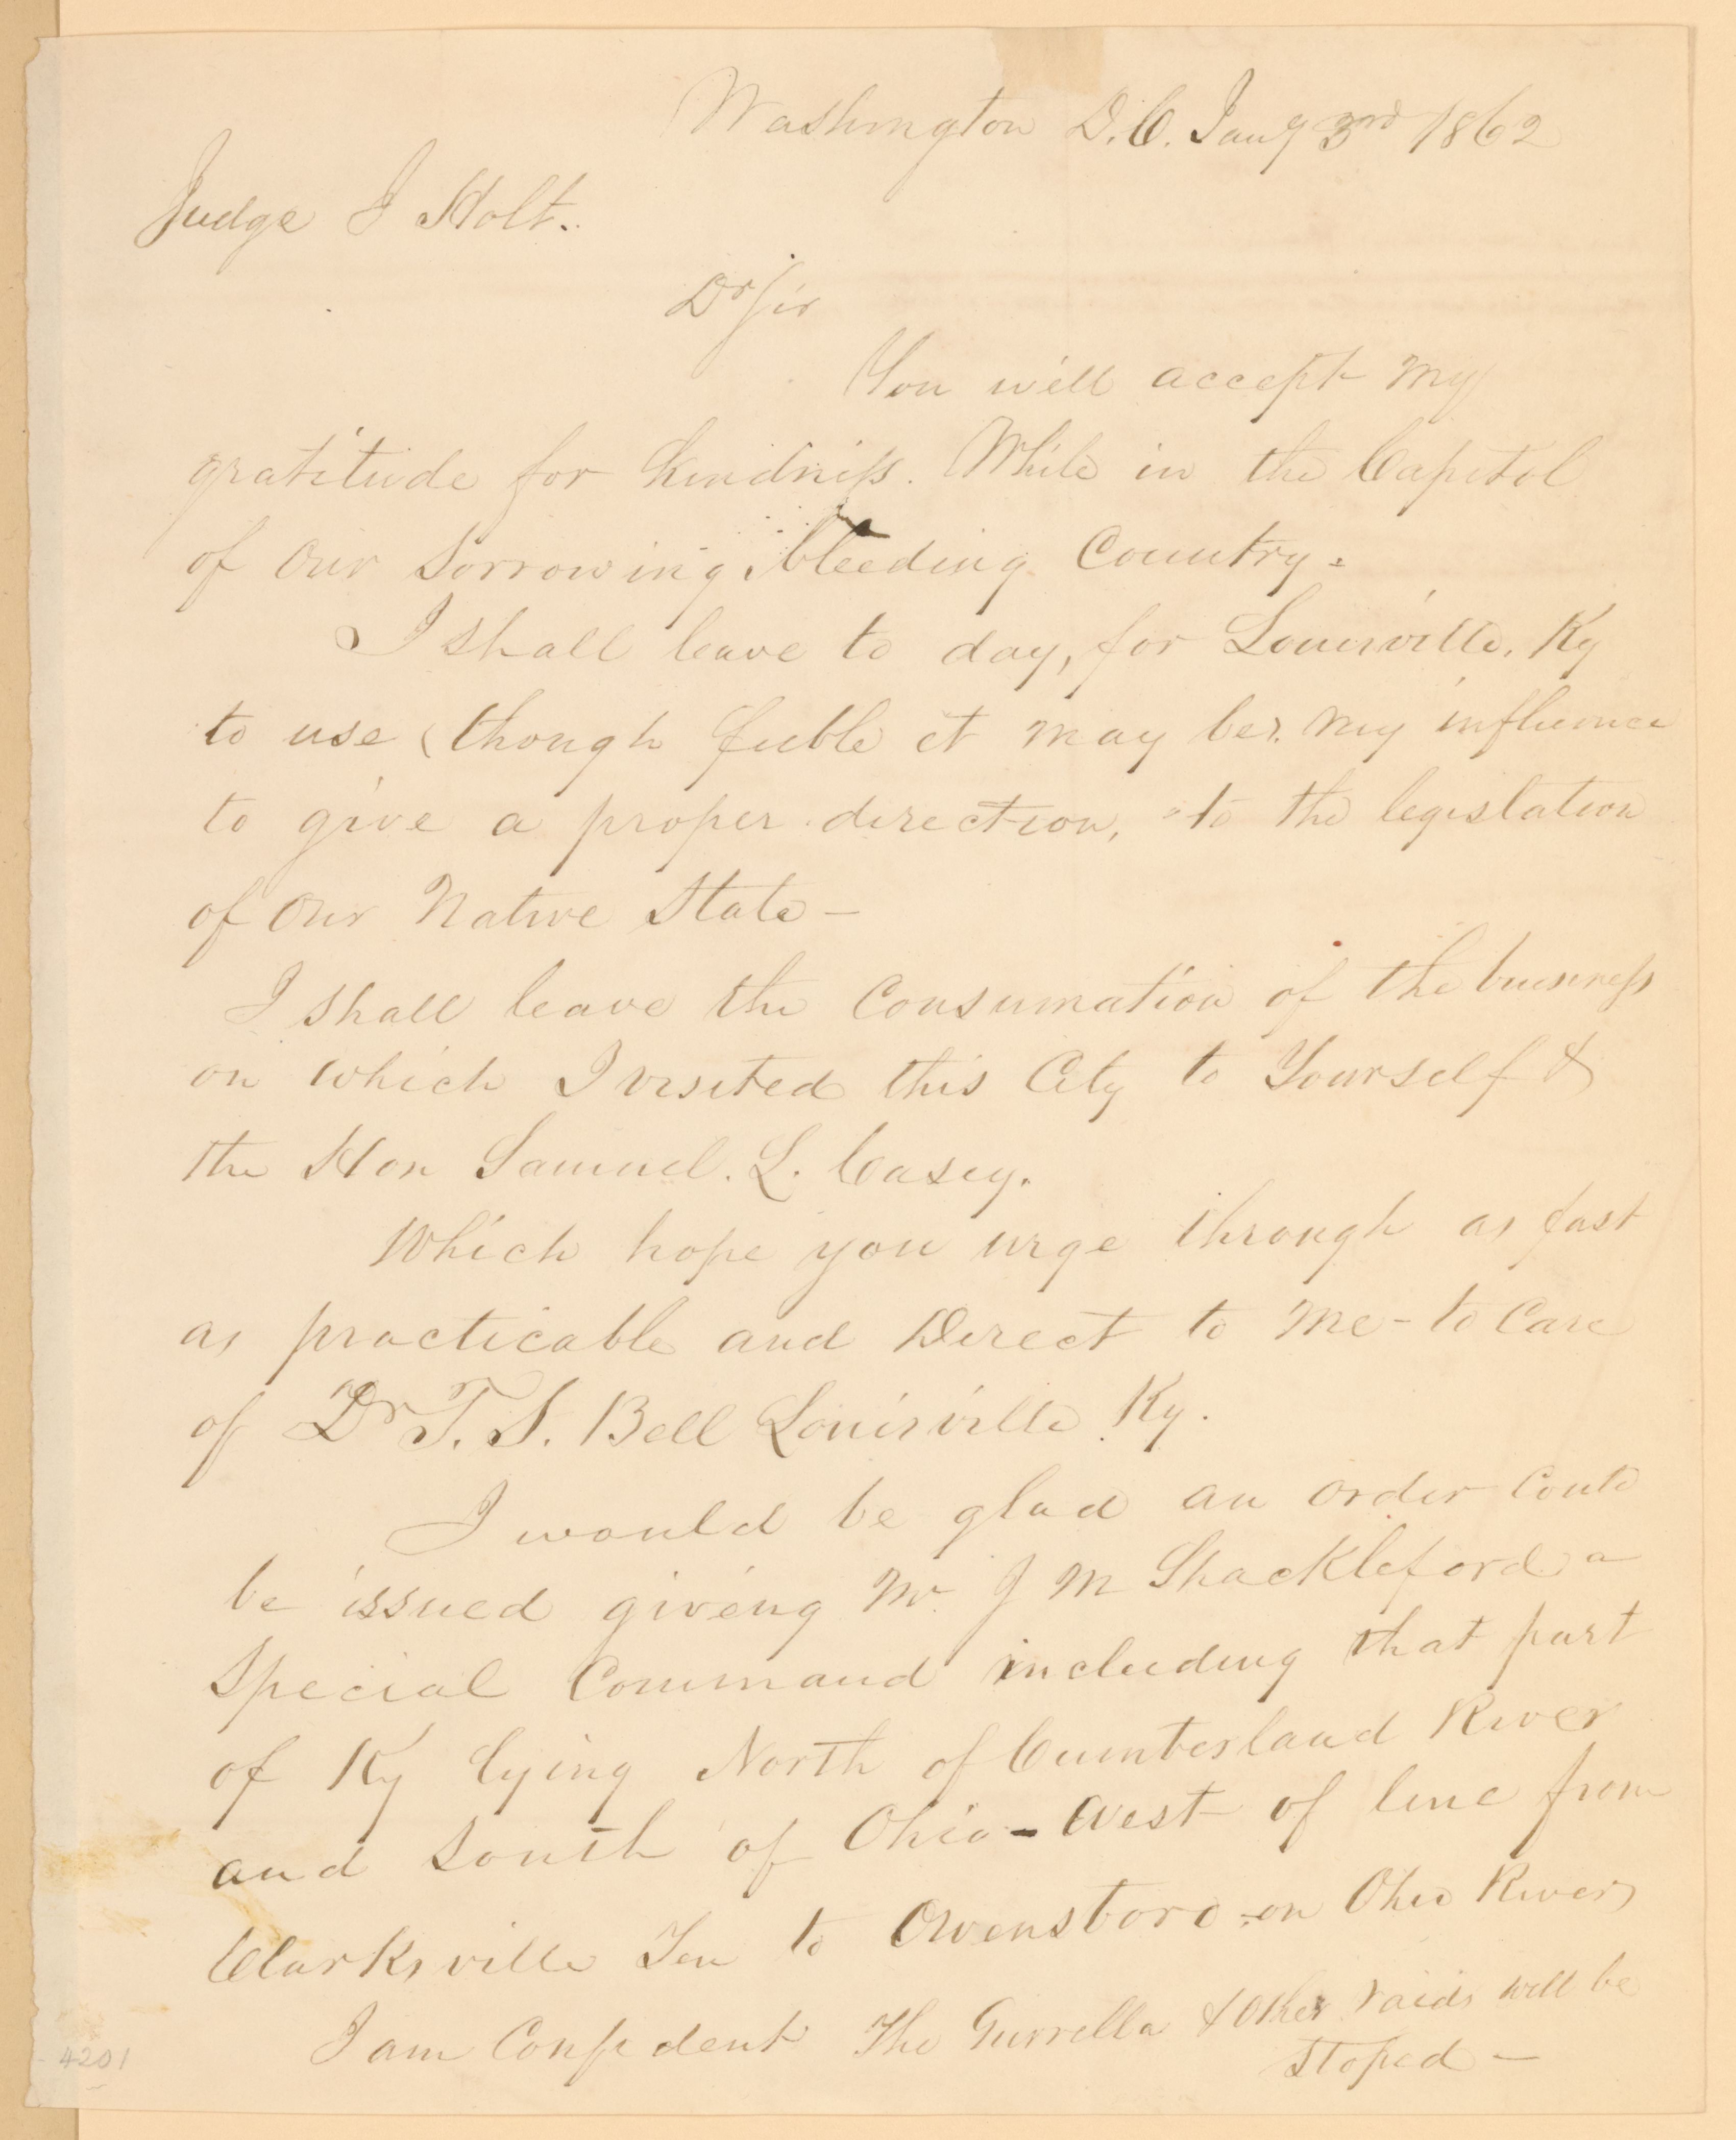 Washington D.C. Jany 3rd 1862
Judge J Holt.
Dr Sir
You will accept my
gratitude for kindness. While in the Capitol
of our Sorrowing, bleeding Country.
I shall leave to day, for Louisville, Ky
to use (though feeble it may be). my influence
to give a proper direction, to the legislation
of our Native State -
I shall leave the Consumation of the business
on which I visited this City to Yourself &
the Hon Samuel. L. Casey.
Which hope you urge through as fast
as practicable and Direct to me - to Care
of Dr T. S. Bell Louisville Ky.
I would be glad an order could
be issued giving Mr J M Shackleford a
special Command including that part
of Ky lying North of Cumberland River
and South of Ohio - West of line from
Clarksville Ten to Owensboro - on Ohio River
I am Confident The Gurrella & other raids will be
stoped -
4201